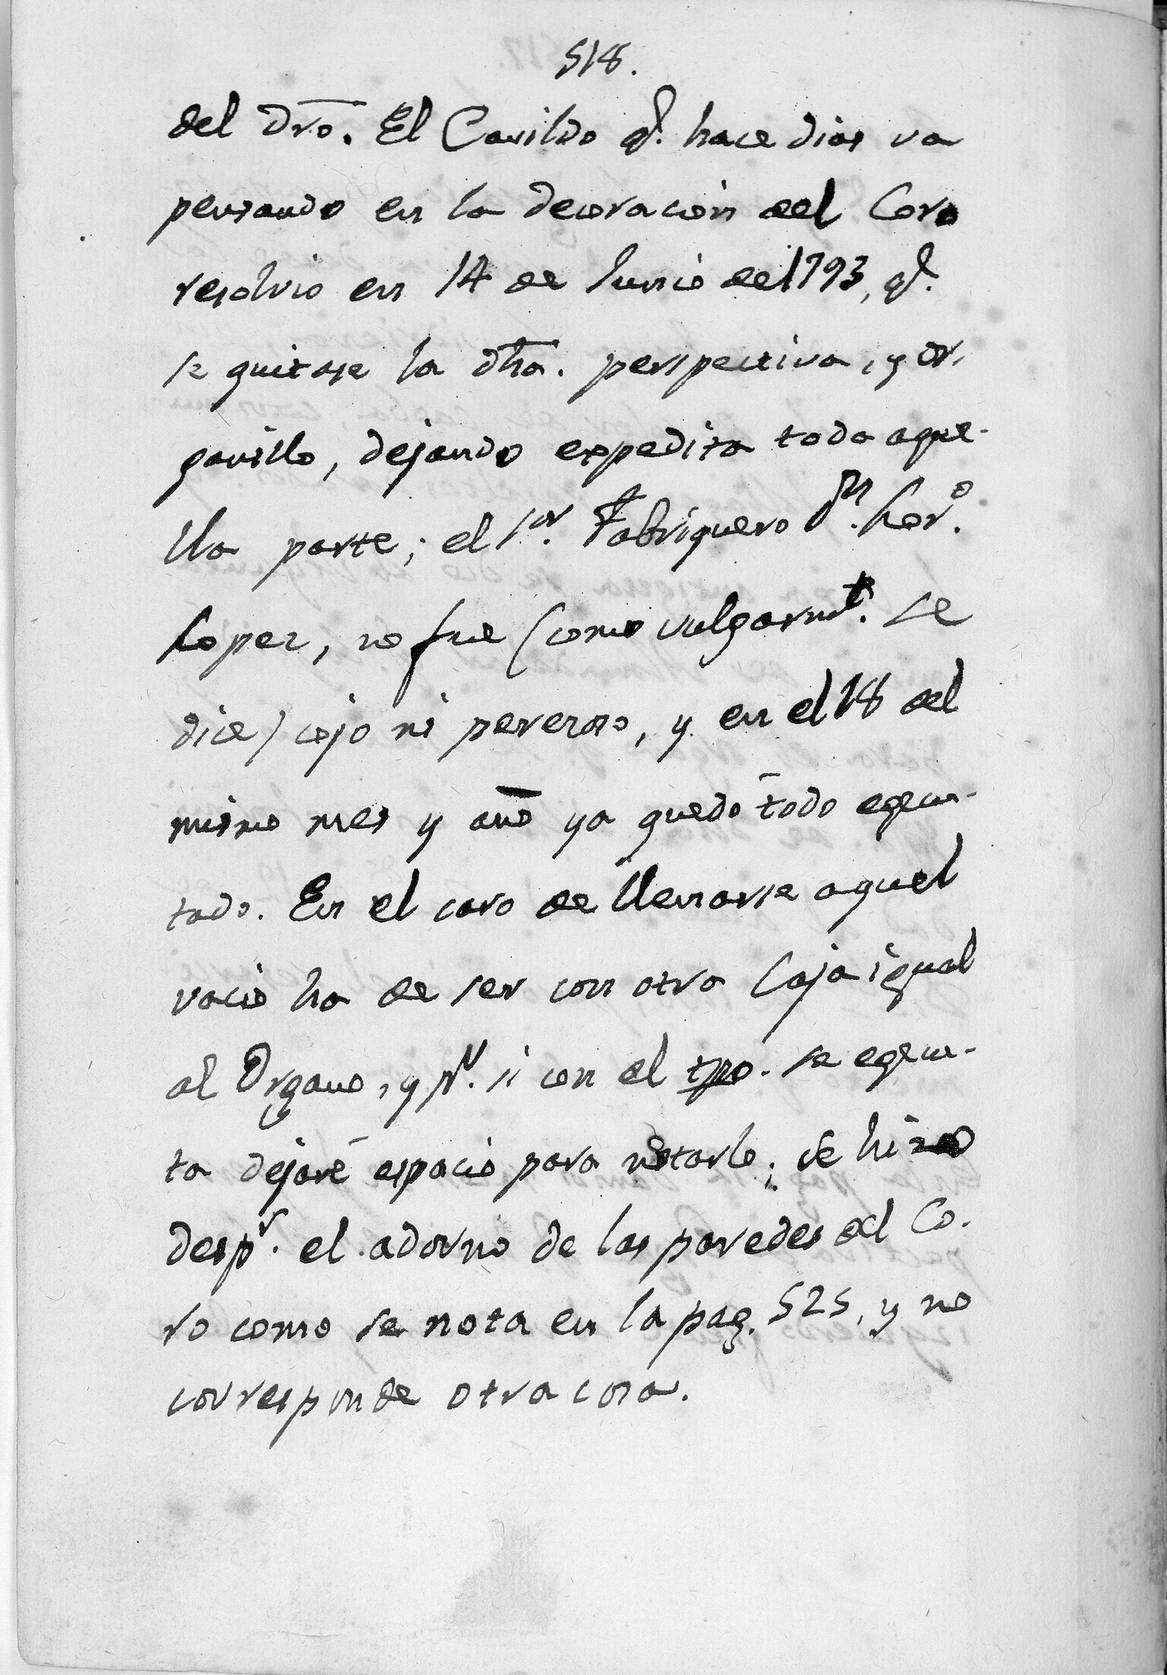 518.
del dro. El Cavildo q.e hace dias va
pensando en la decoracion del Coro
resolvio en 14 de Junio de 1793, q.e
se quitase la dha. perspectiva, y or-
ganillo, dejando expedita toda aque-
lla parte; el s.or Fabriquero d.n Lor.o
Lopez, no fue (como vulgarm.te se
dice) cojo ni perezoso, y en el 18 del
mismo mes y año ya quedó todo egecu-
tado. En el caso de llenarse aquel
vacio ha de ser con otra Caja igual
al Organo, y p.r si con el tpo. se egecu-
ta dejaré espacio para notarlo; se hizo
desp.s el adorno de las paredes del Co-
ro como se nota en la pag. 525, y no
corresponde otra cosa.